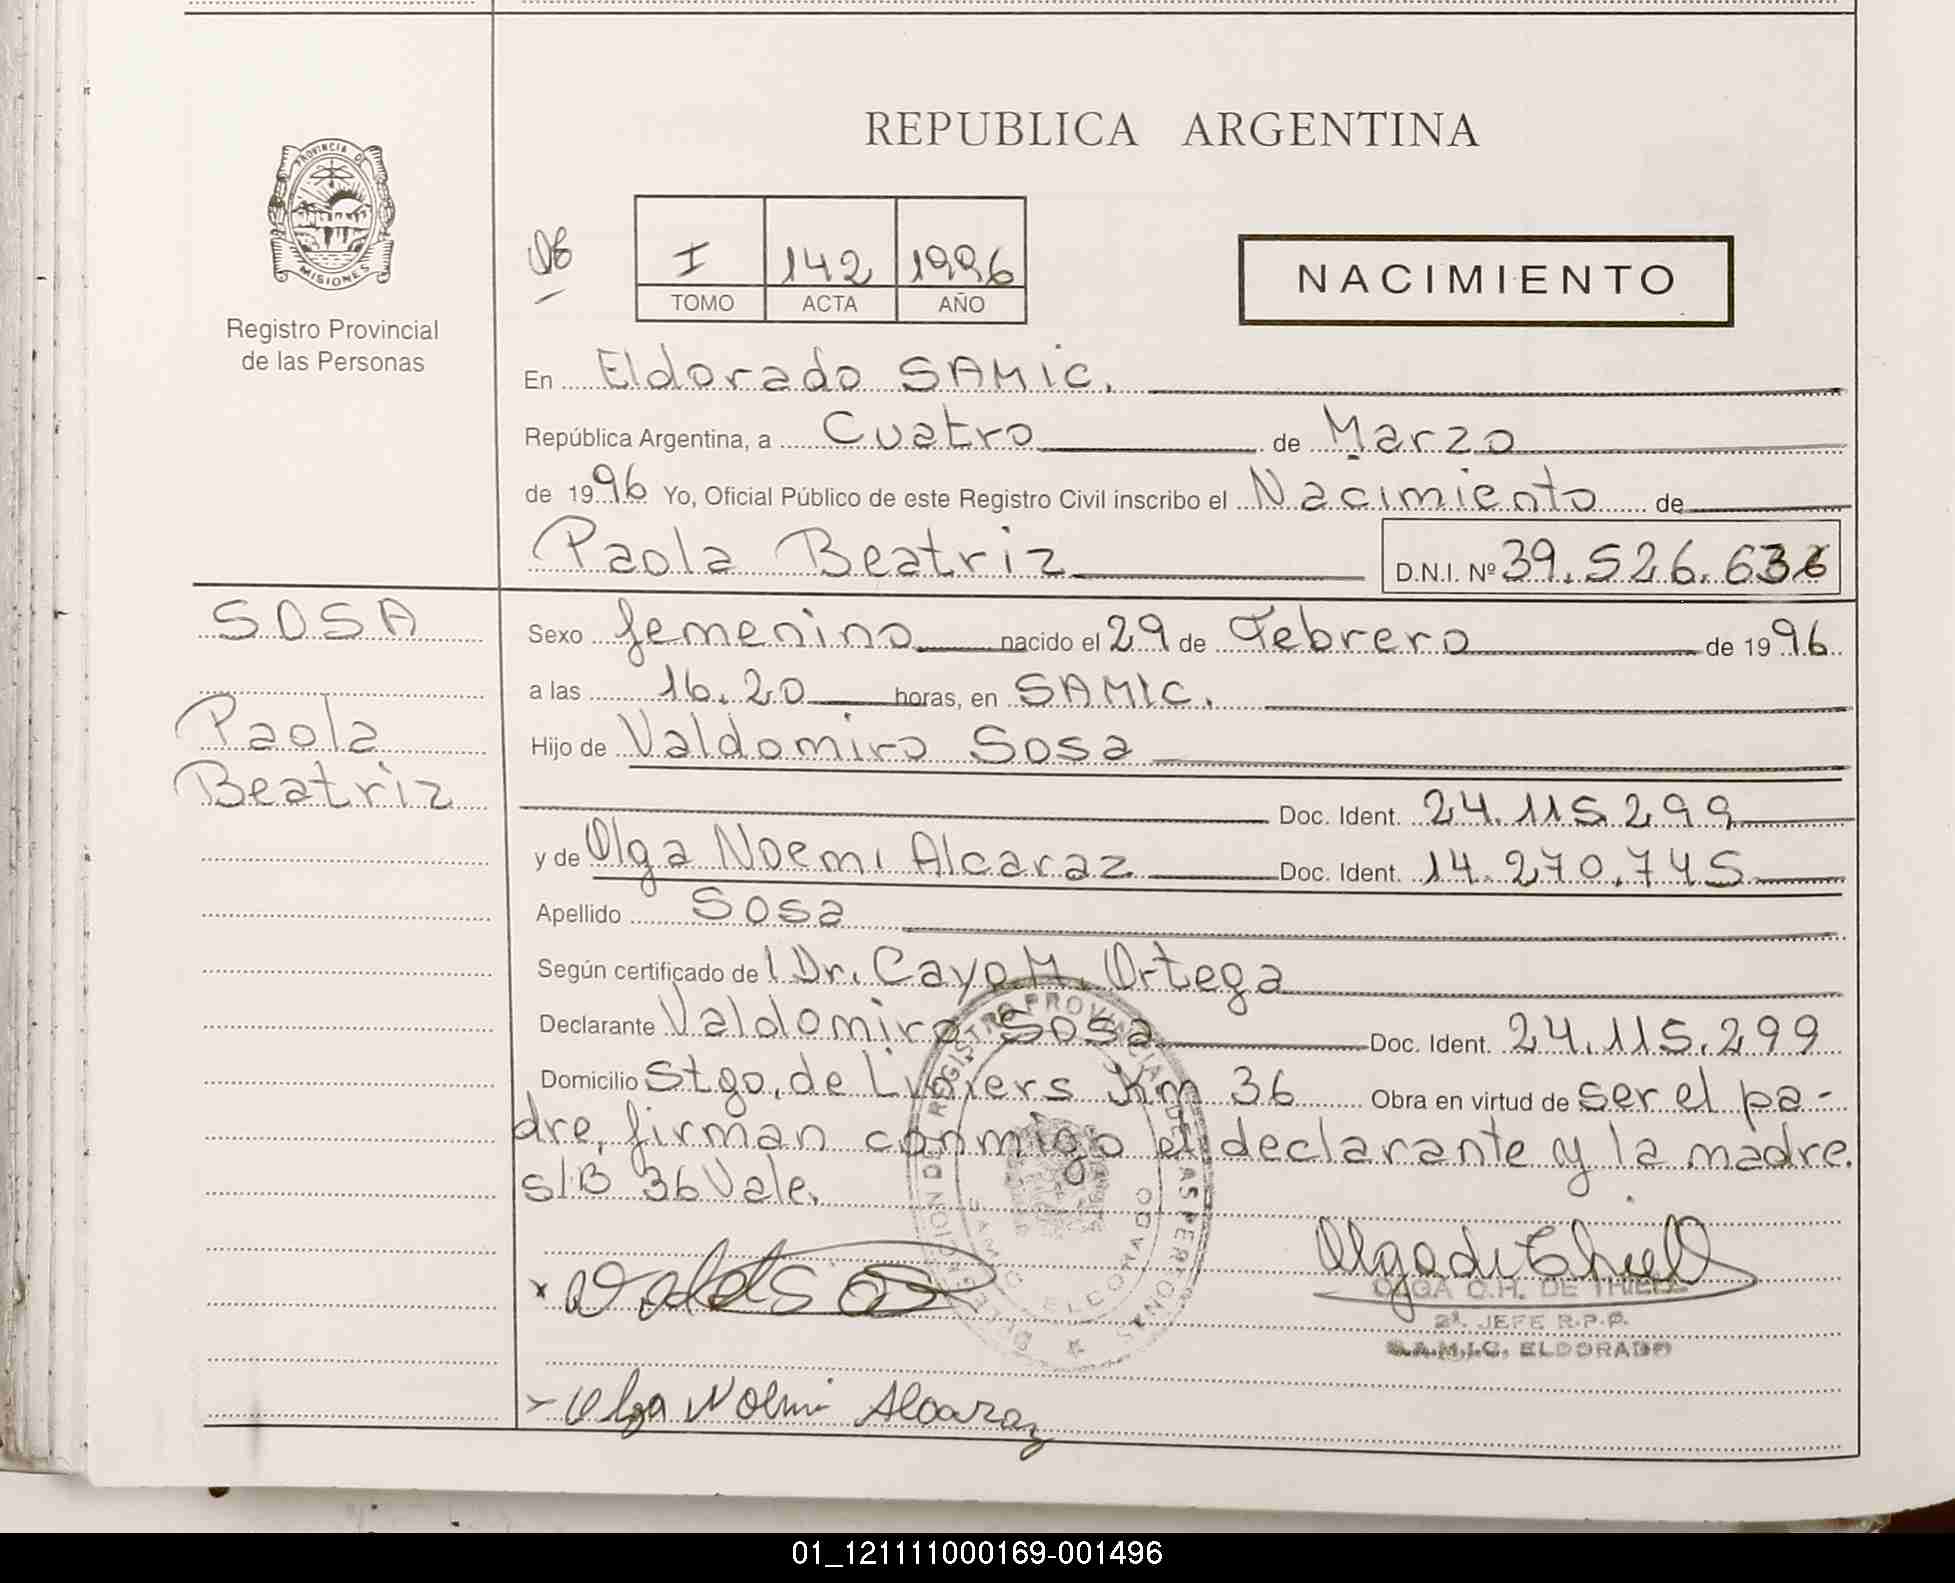 REPUBLICA ARGENTINA
PROVINCIA DE
MISIONES
Registro Provincial
de las Personas
I 142 1996
TOMO ACTA AÑO
NACIMIENTO
En Eldorado SAMIC.
República Argentina, a Cuatro de Marzo
de 1996 Yo, Oficial Público de este Registro Civil inscribo el Nacimiento de
Paola Beatriz D.N.I. Nº 39.526.636
SOSA
Paola
Beatriz
Sexo femenino nacido el 29 de Febrero de 1996
a las 16.20 horas, en SAMIC.
Hijo de Valdomiro Sosa
Doc. Ident. 24.115.299
y de Olga Noemi Alcaraz Doc. Ident. 14.270.745
Apellido Sosa
Según certificado de l Dr. Cayo M. Ortega
Declarante Valdomiro Sosa Doc. Ident. 24.115.299
Domicilio Stgo. de Liniers Km 36 Obra en virtud de ser el pa-
dre, firman conmigo el declarante y la madre.
s/B 36 Vale.
OLGA C.H. DE THIEL
2ª. JEFE R.P.P.
S.A.M.I.C. ELDORADO
Olga Noemi Alcaraz
REGISTRO PROVINCIAL DE LAS PERSONAS
SAMIC ELDORADO
01_121111000169-001496